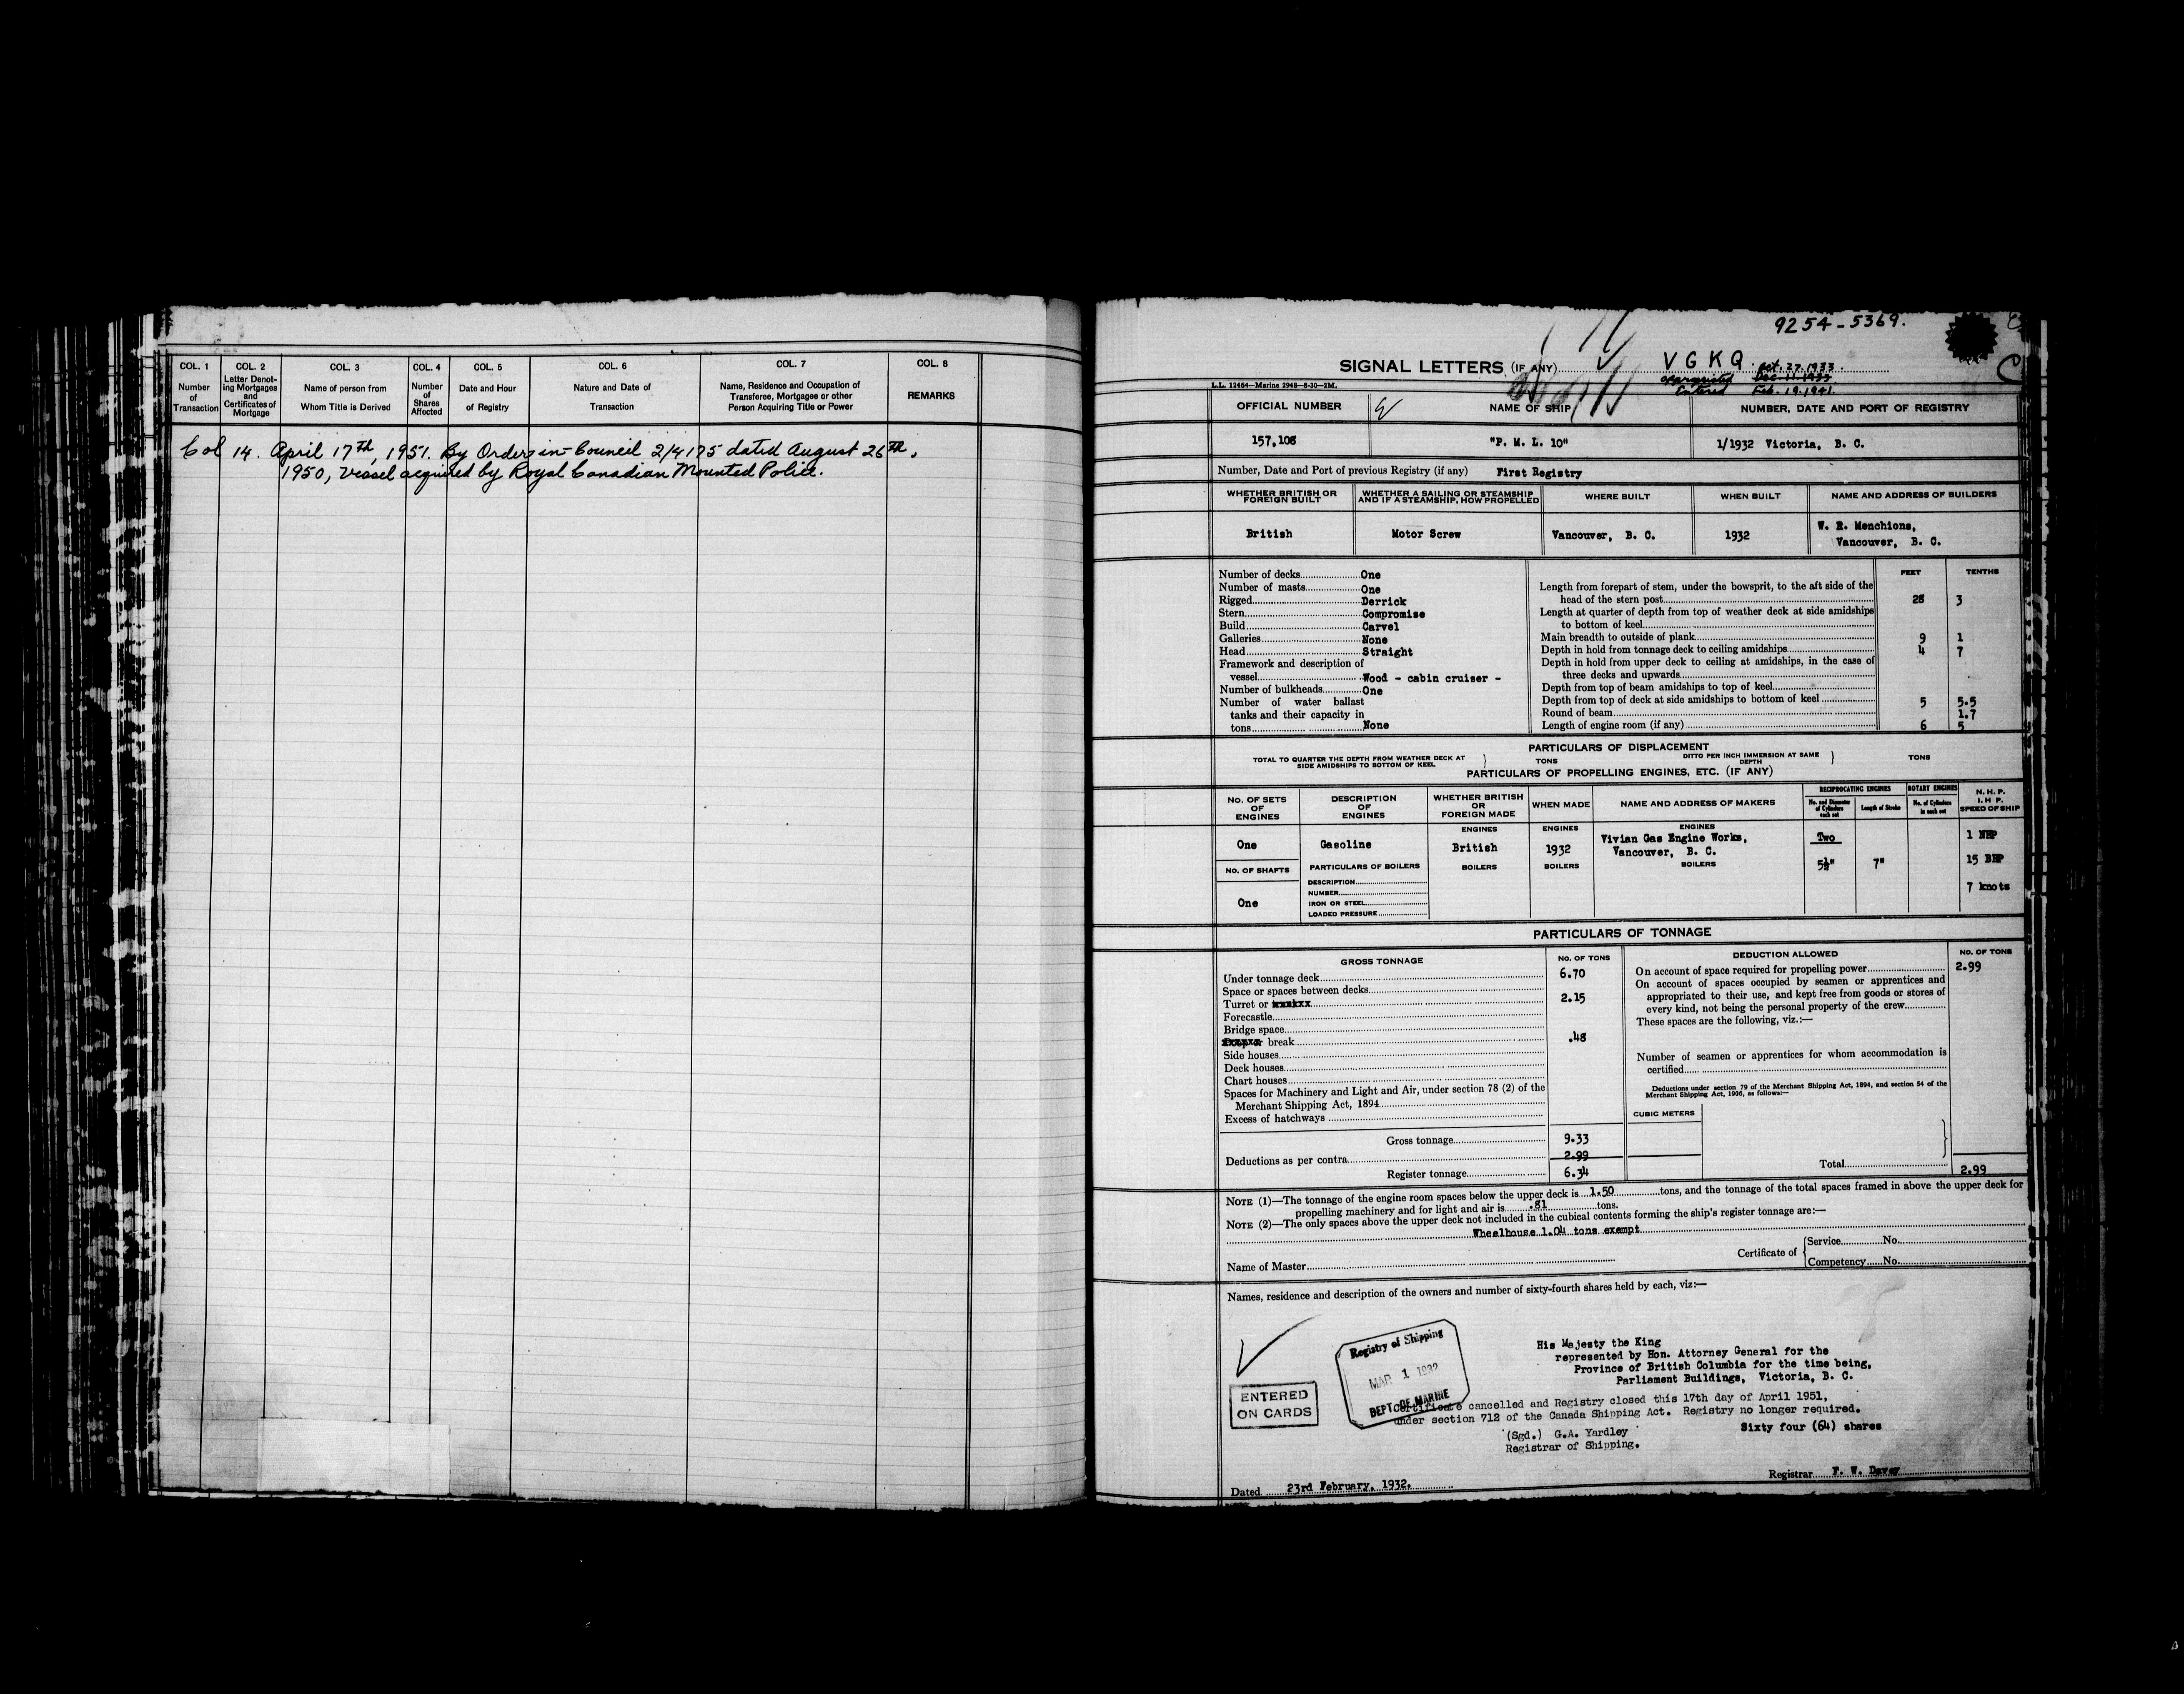 COL. 1
Number
of
Transaction
COL. 2
Letter Denot-
ing Mortgages
and
Certificates of
Mortgage
COL. 3
Name of person from
Whom Title is Derived
COL. 4
Number
of
Shares
Affected
COL. 5
Date and Hour
of Registry
COL. 6
Nature and Date of
Transaction
COL. 7
Name, Residence and Occupation of
Transferee, Mortgagee or other
Person Acquiring Title or Power
COL. 8
REMARKS
Col 14. April 17th, 1951. By Order in-Council 2/4175 dated August 26th,
1950, vessel acquired by Royal Canadian Mounted Police.
9254-5369.
SIGNAL LETTERS (IF ANY) V G K Q Oct. 27.1933.
Dec 11 1933
Entered Feb. 19.1941.
L.L. 12464—Marine 2948—8-30—2M.
OFFICIAL NUMBER NAME OF SHIP NUMBER, DATE AND PORT OF REGISTRY
157,108 "P. M. L. 10" 1/1932 Victoria, B. C.
Number, Date and Port of previous Registry (if any) First Registry
WHETHER BRITISH OR
FOREIGN BUILT
WHETHER A SAILING OR STEAMSHIP
AND IF A STEAMSHIP, HOW PROPELLED
WHERE BUILT WHEN BUILT NAME AND ADDRESS OF BUILDERS
British Motor Screw Vancouver, B. C. 1932 W. R. Menchions,
Vancouver, B. C.
Number of decks One
Number of masts One
Rigged Derrick
Stern Compromise
Build Carvel
Galleries None
Head Straight
Framework and description of
vessel Wood - cabin cruiser -
Number of bulkheads One
Number of water ballast
tanks and their capacity in
tons None
FEET TENTHS
Length from forepart of stem, under the bowsprit, to the aft side of the
head of the stern post 28 3
Length at quarter of depth from top of weather deck at side amidships
to bottom of keel
Main breadth to outside of plank 9 1
Depth in hold from tonnage deck to ceiling amidships 4 7
Depth in hold from upper deck to ceiling at amidships, in the case of
three decks and upwards
Depth from top of beam amidships to top of keel
Depth from top of deck at side amidships to bottom of keel 5 5.5
Round of beam 1.7
Length of engine room (if any) 6 5
PARTICULARS OF DISPLACEMENT
TOTAL TO QUARTER THE DEPTH FROM WEATHER DECK AT
SIDE AMIDSHIPS TO BOTTOM OF KEEL. } TONS
DITTO PER INCH IMMERSION AT SAME
DEPTH } TONS
PARTICULARS OF PROPELLING ENGINES, ETC. (IF ANY)
NO. OF SETS
OF
ENGINES
DESCRIPTION
OF
ENGINES
WHETHER BRITISH
OR
FOREIGN MADE
WHEN MADE
NAME AND ADDRESS OF MAKERS
RECIPROCATING ENGINES
No. and Diameter
of Cylinders
each set
Length of Stroke
ROTARY ENGINES
No. of Cylinders
in each set
N. H. P.
I. H P.
SPEED OF SHIP
ENGINES ENGINES ENGINES
One Gasoline British 1932 Vivian Gas Engine Works,
Vancouver, B. C.
Two 1 NHP
NO. OF SHAFTS PARTICULARS OF BOILERS BOILERS BOILERS BOILERS 5½" 7" 15 BHP
One
DESCRIPTION
NUMBER
IRON OR STEEL
LOADED PRESSURE
7 knots
PARTICULARS OF TONNAGE
GROSS TONNAGE NO. OF TONS
Under tonnage deck 6.70
Space or spaces between decks
Turret or 2.15
Forecastle
Bridge space
break .48
Side houses
Deck houses
Chart houses
Spaces for Machinery and Light and Air, under section 78 (2) of the
Merchant Shipping Act, 1894
Excess of hatchways
Gross tonnage 9.33
Deductions as per contra 2.99
Register tonnage 6.34
DEDUCTION ALLOWED NO. OF TONS
On account of space required for propelling power 2.99
On account of spaces occupied by seamen or apprentices and
appropriated to their use, and kept free from goods or stores of
every kind, not being the personal property of the crew
These spaces are the following, viz.:—
Number of seamen or apprentices for whom accommodation is
certified
Deductions under section 79 of the Merchant Shipping Act, 1894, and section 54 of the
Merchant Shipping Act, 1906, as follows:—
CUBIC METERS
Total 2.99
NOTE (1)—The tonnage of the engine room spaces below the upper deck is 1.50 tons, and the tonnage of the total spaces framed in above the upper deck for
propelling machinery and for light and air is .81 tons.
NOTE (2)—The only spaces above the upper deck not included in the cubical contents forming the ship's register tonnage are:—
Wheelhouse 1.04 tons exempt
Name of Master
Certificate of { Service No.
Competency No.
Names, residence and description of the owners and number of sixty-fourth shares held by each, viz:—
Registry of Shipping
MAR 1 1932
DEPT. OF MARINE
ENTERED
ON CARDS
His Majesty the King
represented by Hon. Attorney General for the
Province of British Columbia for the time being,
Parliament Buildings, Victoria, B. C.
Certificate cancelled and Registry closed this 17th day of April 1951,
under section 712 of the Canada Shipping Act. Registry no longer required.
Sixty four (64) shares
(Sgd.) G.A. Yardley
Registrar of Shipping.
Registrar F. W. Davey
Dated 23rd February, 1932.